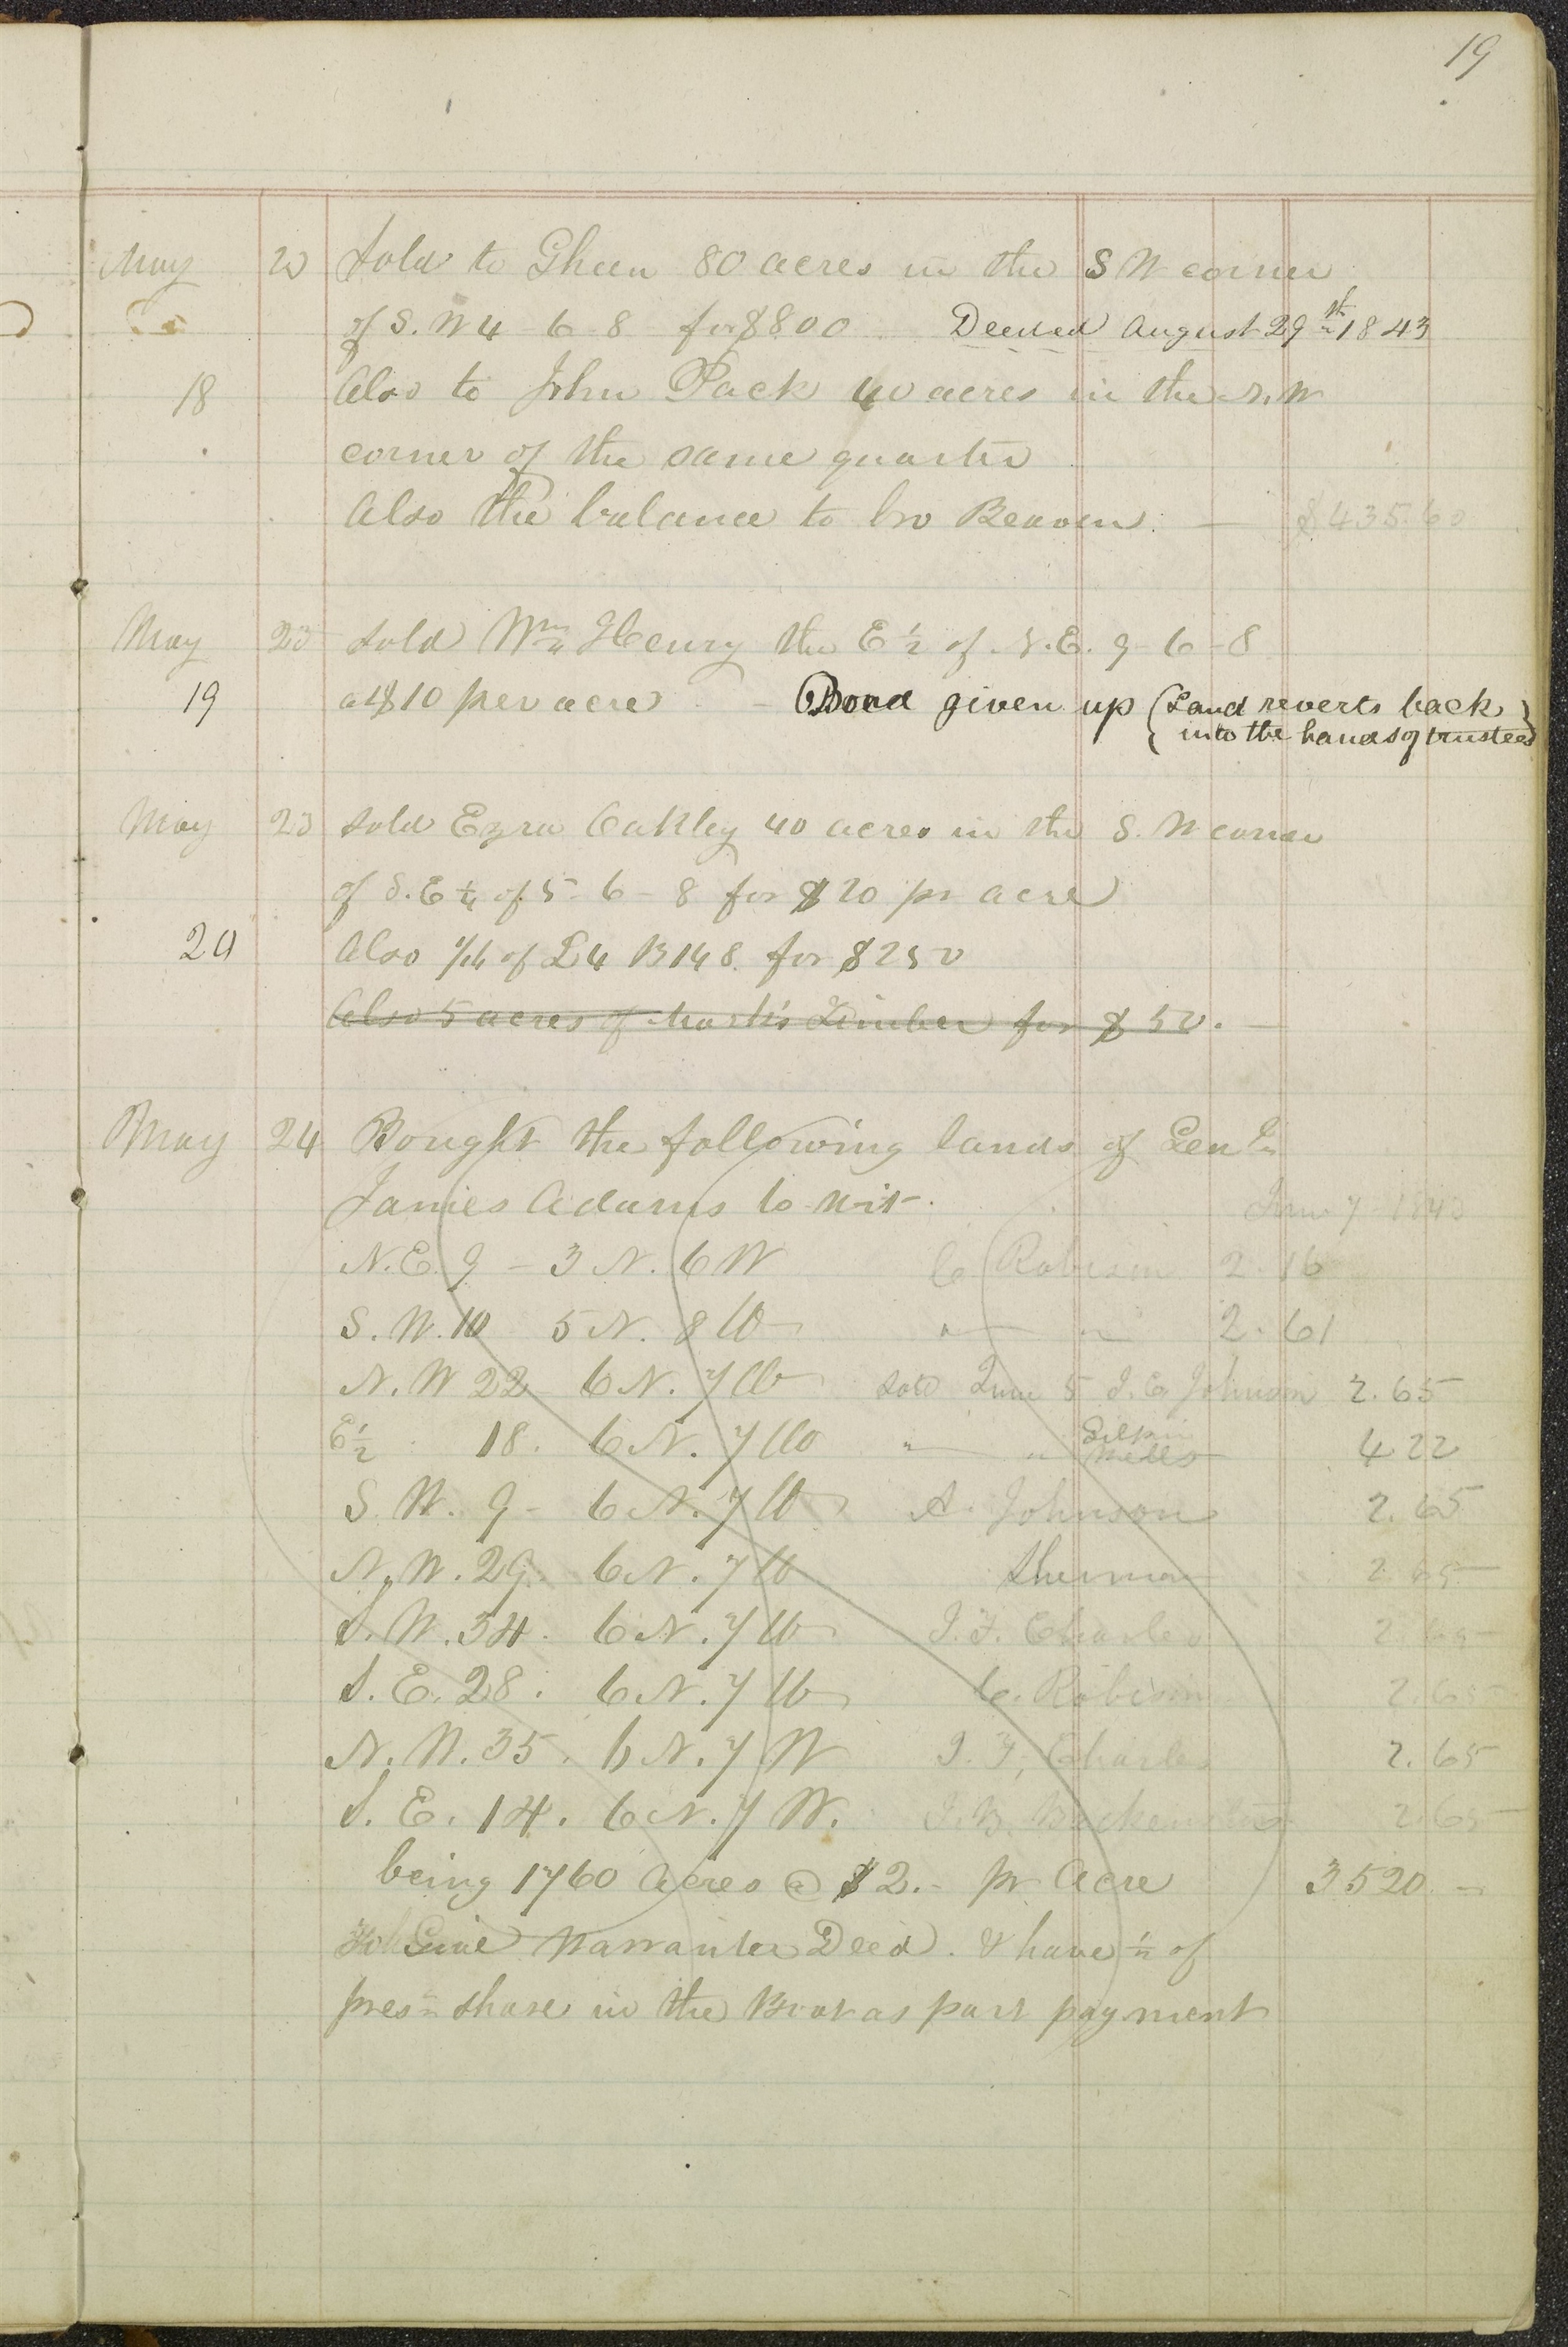 19
May 20 Sold to Gheen 80 acres in the S W corner
of S. W 4 6 8 for $800 Deeded August 29th 1843
18 Also to John Pack 40 acres in the N. W
corner of the same quarter
Also the balance to bro Beaven. — $435.60
May 23 Sold Wm Henry the E ½ of N. E. 9 - 6 - 8
19 at $10 per acre - Bond given up (Land reverts back
into the hands of trustees)
May 23 Sold Ezra Oakley 40 acres in the S. W corner
of S. E ¼ of 5 - 6 - 8 for $20 pr acre
20 Also 1/4 of L4 B148. for $250
Also 5 acres of Marks Timber for $50. —
May 24 Bought the following lands of Genl
James Adams to wit. June 7 - 1843
N. E. 9 - 3 N. 6 W C. Robison 2. 16
S. W. 10 5 N. 8 W " " 2. 61
N. W 22 6 N. 7 W Sold June 5 J. C. Johnson 2. 65
E ½ 18. 6 N. 7 W " " Gilpin Wells 4 22
S W. 9 - 6 N. 7 W A. Johnson 2. 65
N. W. 29. 6 N. 7 W Sherman 2 65
S. W. 34. 6 N. 7 W J. F. Charles 2 65
S. E. 28. 6 N. 7 W C. Robison 2. 65
N. W. 35. 6 N. 7 W J. F. Charles 2. 65
S. E. 14. 6 N. 7 W. J. B. Backenstos 2 65
being 1760 Acres @ $2. - pr Acre 3520. -
Give Warrantee Deed. & have ½ of
pres= share in the Boat as part payment